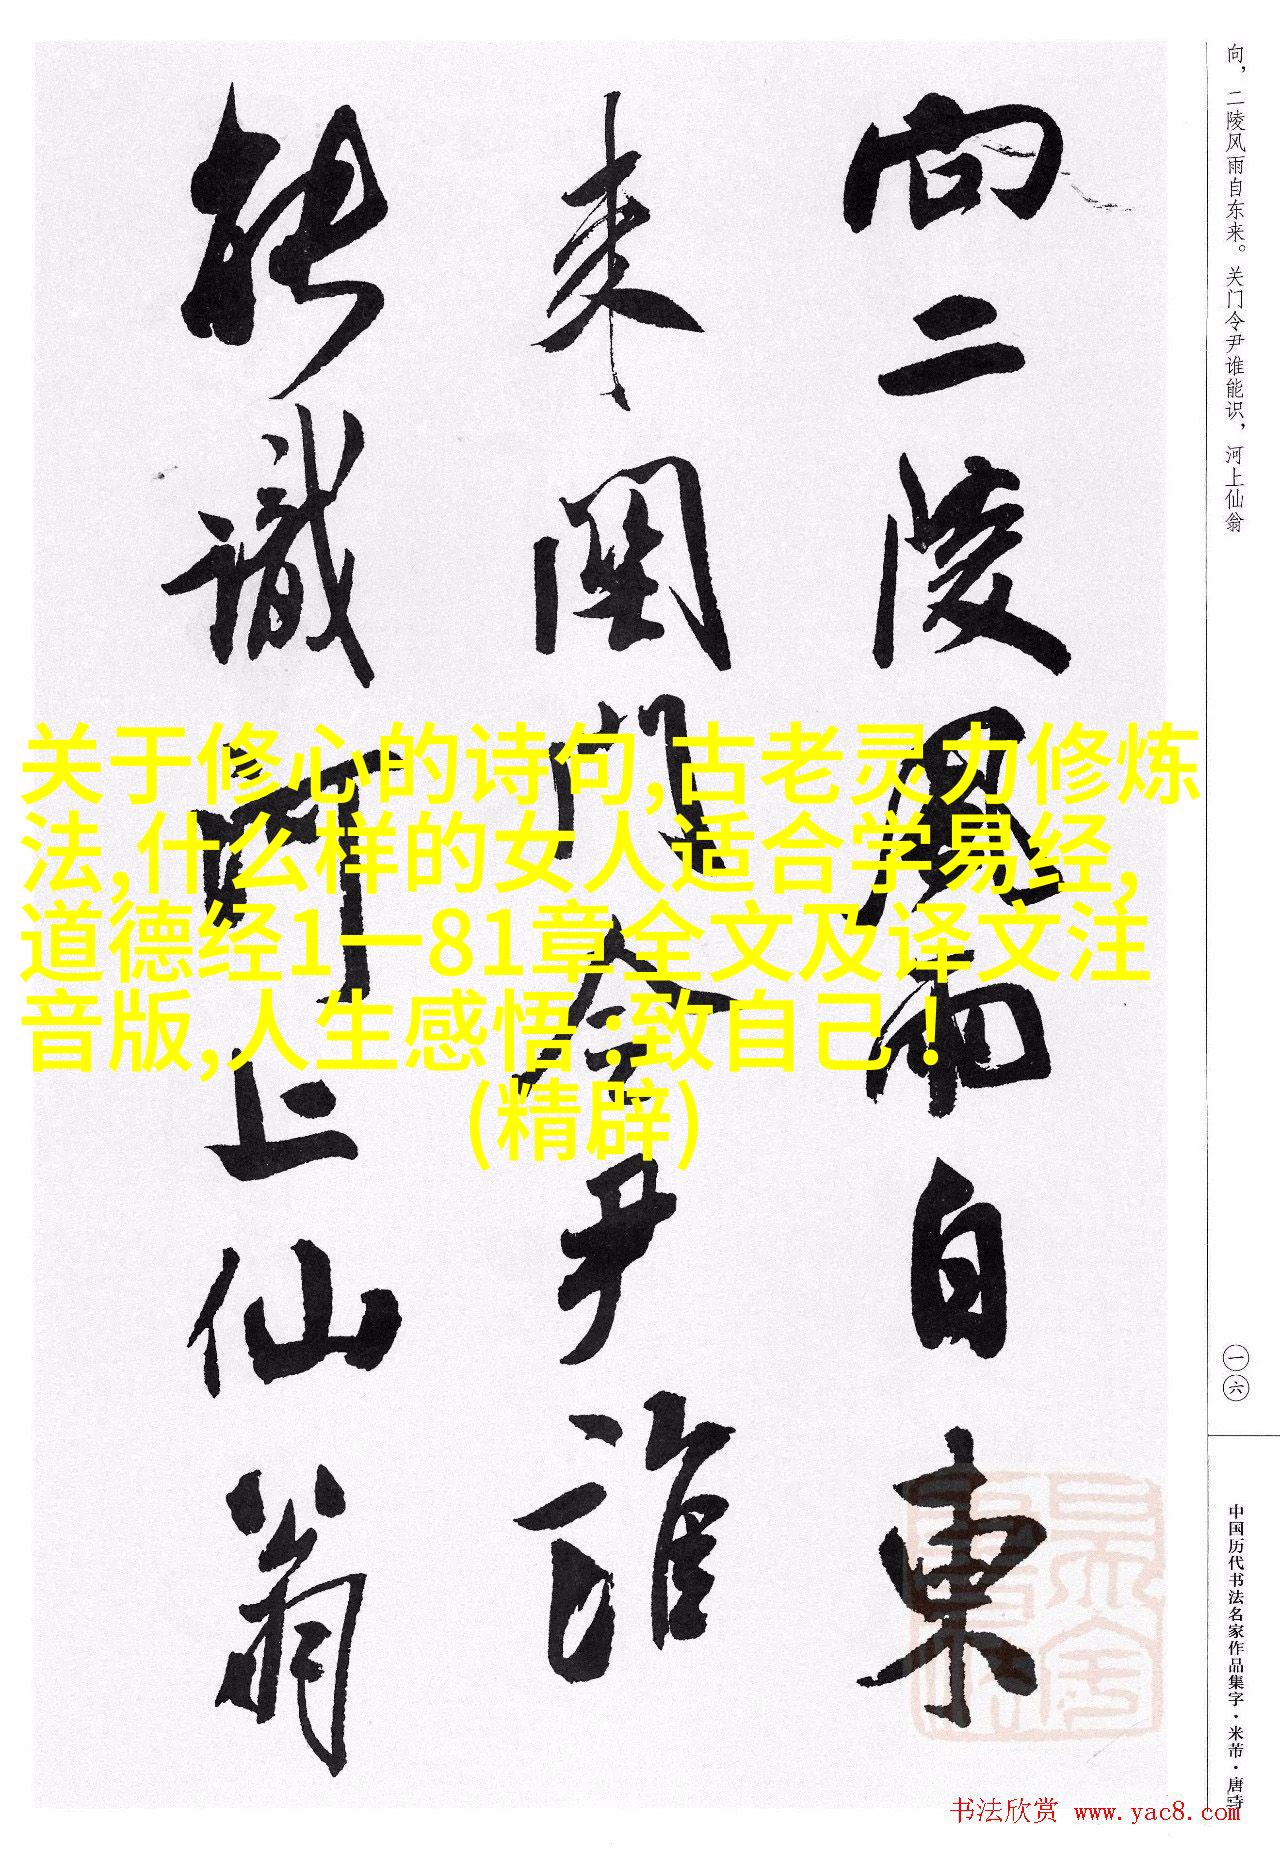 向，二陵风雨自东来。关门令尹谁能识，河上仙翁
向二陵風雨自東
来関門令尹誰
能識河上仙翁
关于修心的诗句,古老灵力修炼
法,什么样的女人适合学易经,
道德经1一81章全文及译文注
音版,人生感悟:致自己!
(精辟)
一六
中国历代书法名家作品集字·米芾·唐诗
书法欣赏 www.yac8.com